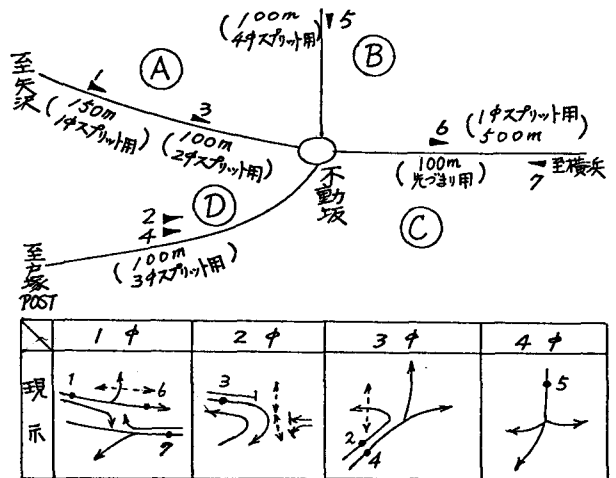 (100m
4φスプリット用)
5
B
A
至矢沢
1
(150m
1φスプリット用)
3
(100m
2φスプリット用)
6
(1φスプリット用
500m)
(100m
先づまり用)
7
至横浜
不動坂
C
D
2
4
(100m
3φスプリット用)
至戸塚
POST
1 φ
2 φ
3 φ
4 φ
現示
1
6
7
3
2
4
5